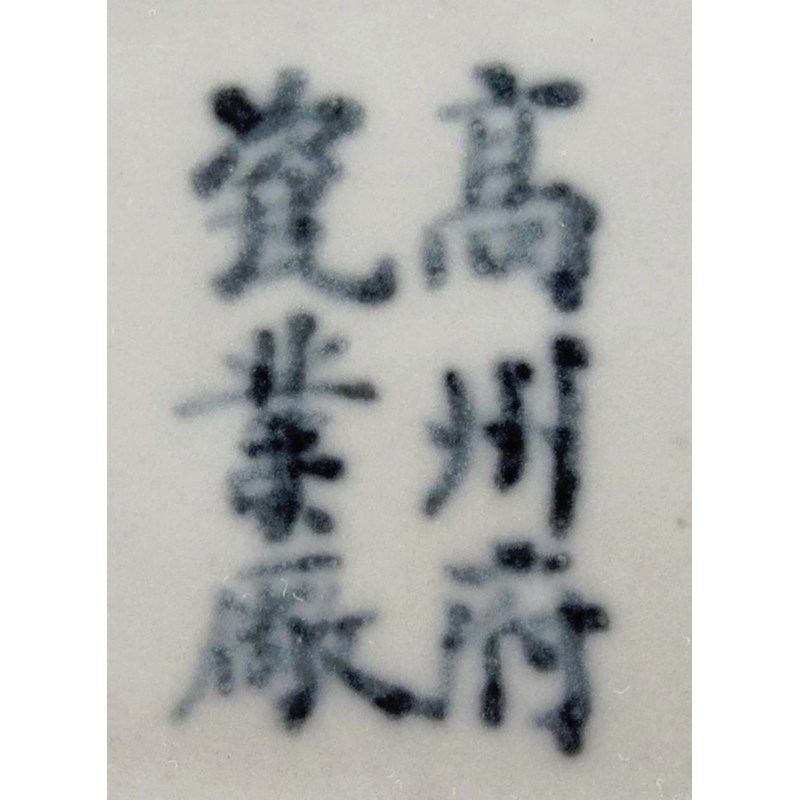 高州府
瓷業廠